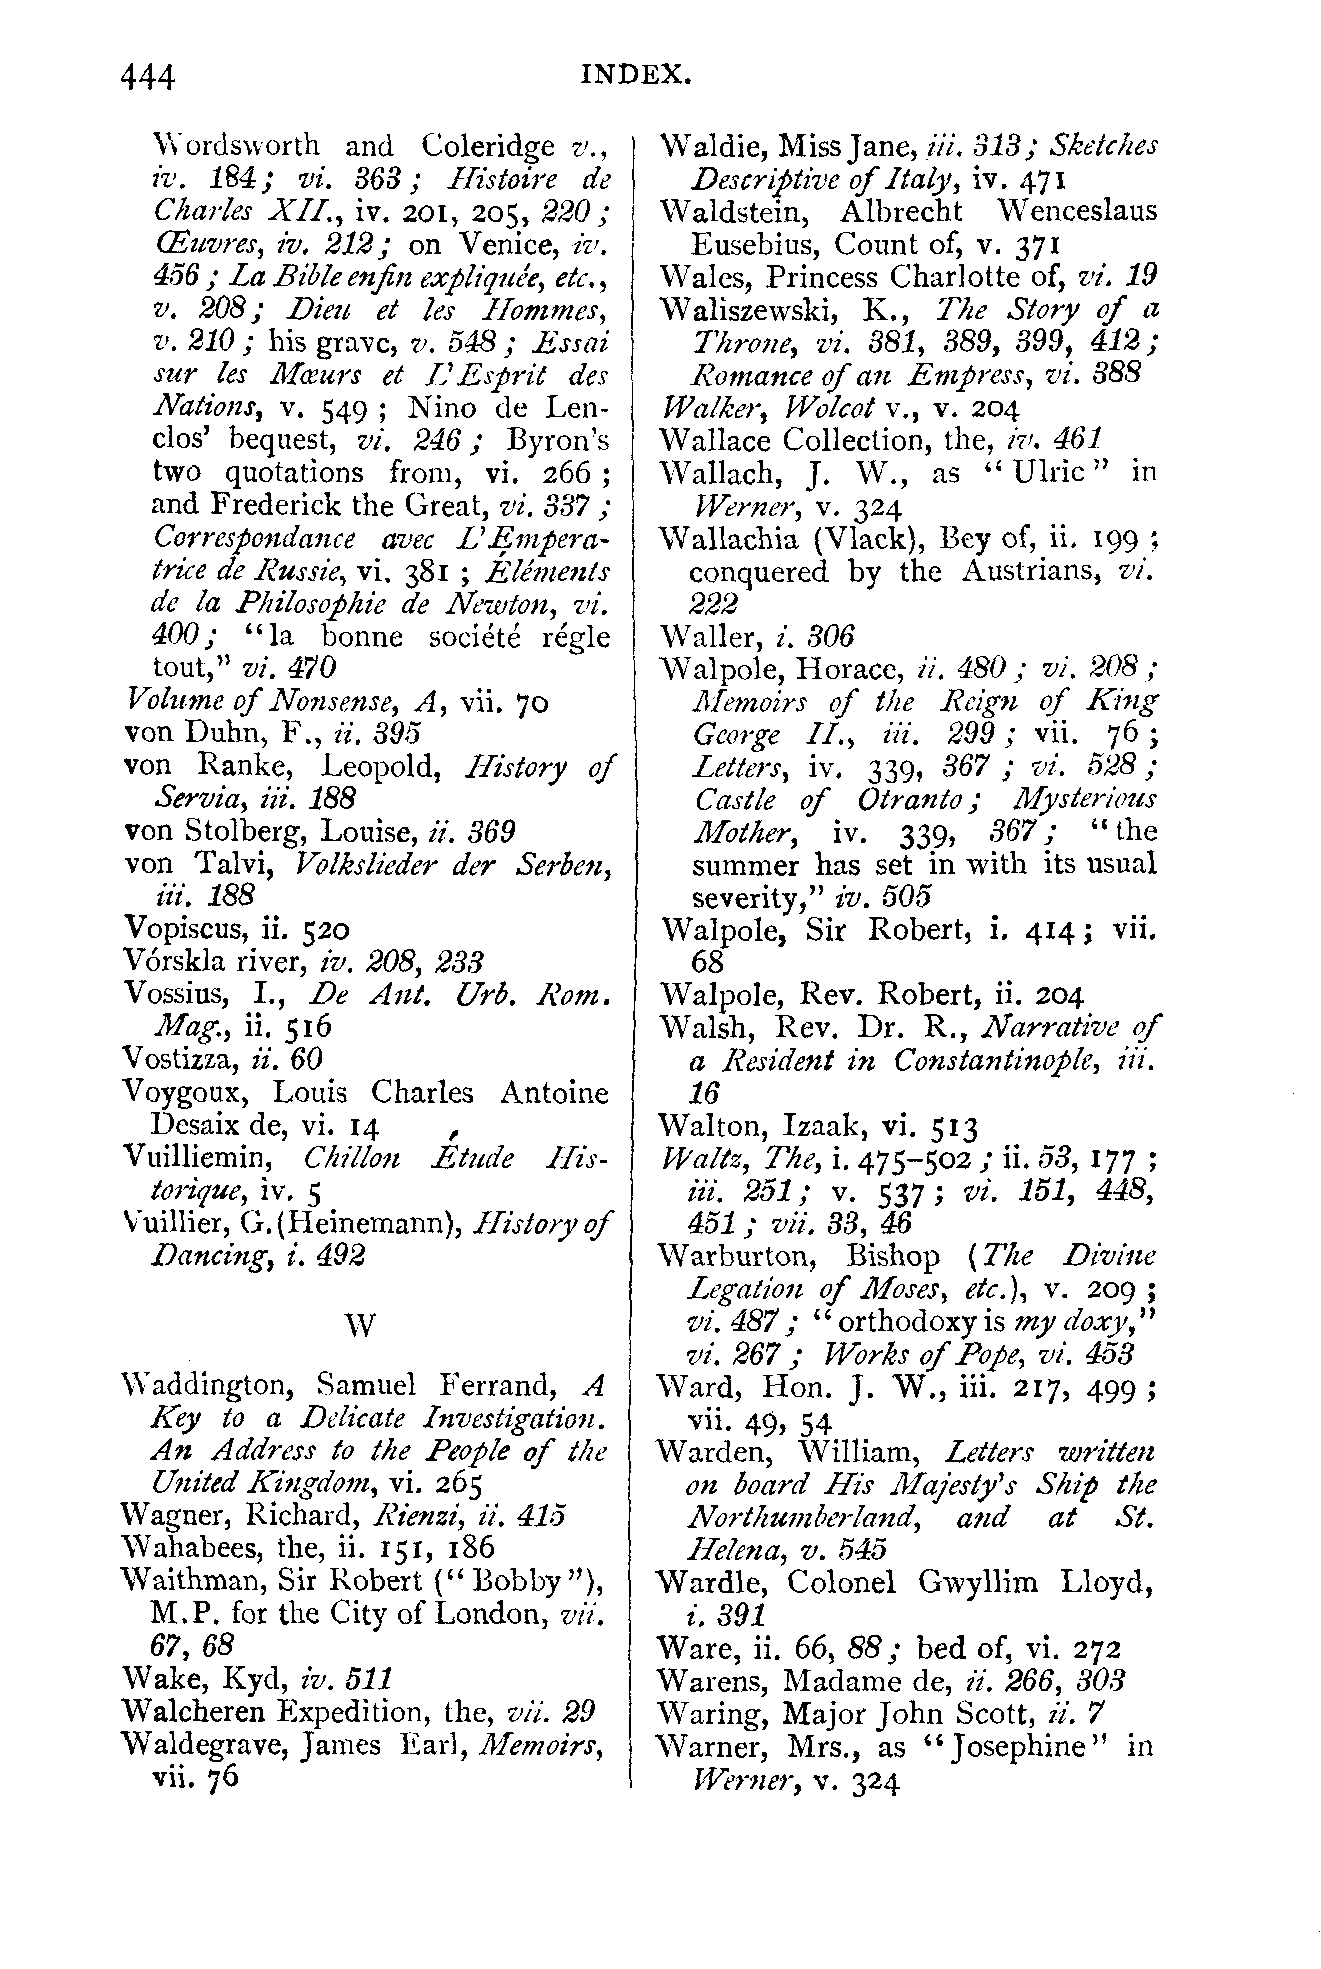 444 INDEX.
Wordsworth and Coleridge v.,
iv. 184; vi. 363; Histoire de
Charles XII., iv. 201, 205, 220;
Œuvres, iv. 212; on Venice, iv.
456; La Bible enfin expliquée, etc.,
v. 208; Dieu et les Hommes,
v. 210; his grave, v. 548; Essai
sur les Mœurs et L'Esprit des
Nations, v. 549; Nino de Len-
clos' bequest, vi. 246; Byron's
two quotations from, vi. 266;
and Frederick the Great, vi. 337;
Correspondance avec L'Empera-
trice de Russie, vi. 381; Éléments
de la Philosophie de Newton, vi.
400; "la bonne société régle
tout," vi. 470
Volume of Nonsense, A, vii. 70
von Duhn, F., ii. 395
von Ranke, Leopold, History of
Servia, iii. 188
von Stolberg, Louise, ii. 369
von Talvi, Volkslieder der Serben,
iii. 188
Vopiscus, ii. 520
Vórskla river, iv. 208, 233
Vossius, I., De Ant. Urb. Rom.
Mag., ii. 516
Vostizza, ii. 60
Voygoux, Louis Charles Antoine
Desaix de, vi. 14
Vuilliemin, Chillon Étude His-
torique, iv. 5
Vuillier, G. (Heinemann), History of
Dancing, i. 492
W
Waddington, Samuel Ferrand, A
Key to a Delicate Investigation.
An Address to the People of the
United Kingdom, vi. 265
Wagner, Richard, Rienzi, ii. 415
Wahabees, the, ii. 151, 186
Waithman, Sir Robert ("Bobby"),
M.P. for the City of London, vii.
67, 68
Wake, Kyd, iv. 511
Walcheren Expedition, the, vii. 29
Waldegrave, James Earl, Memoirs,
vii. 76
Waldie, Miss Jane, iii. 313; Sketches
Descriptive of Italy, iv. 471
Waldstein, Albrecht Wenceslaus
Eusebius, Count of, v. 371
Wales, Princess Charlotte of, vi. 19
Waliszewski, K., The Story of a
Throne, vi. 381, 389, 399, 412;
Romance of an Empress, vi. 388
Walker, Wolcot v., v. 204
Wallace Collection, the, iv. 461
Wallach, J. W., as "Ulric" in
Werner, v. 324
Wallachia (Vlack), Bey of, ii. 199;
conquered by the Austrians, vi.
222
Waller, i. 306
Walpole, Horace, ii. 480; vi. 208;
Memoirs of the Reign of King
George II., iii. 299; vii. 76;
Letters, iv. 339, 367; vi. 528;
Castle of Otranto; Mysterious
Mother, iv. 339, 367; "the
summer has set in with its usual
severity," iv. 505
Walpole, Sir Robert, i. 414; vii.
68
Walpole, Rev. Robert, ii. 204
Walsh, Rev. Dr. R., Narrative of
a Resident in Constantinople, iii.
16
Walton, Izaak, vi. 513
Waltz, The, i. 475–502; ii. 53, 177;
iii. 251; v. 537; vi. 151, 448,
451; vii. 33, 46
Warburton, Bishop (The Divine
Legation of Moses, etc.), v. 209;
vi. 487; "orthodoxy is my doxy,"
vi. 267; Works of Pope, vi. 453
Ward, Hon. J. W., iii. 217, 499;
vii. 49, 54
Warden, William, Letters written
on board His Majesty's Ship the
Northumberland, and at St.
Helena, v. 545
Wardle, Colonel Gwyllim Lloyd,
i. 391
Ware, ii. 66, 88; bed of, vi. 272
Warens, Madame de, ii. 266, 303
Waring, Major John Scott, ii. 7
Warner, Mrs., as "Josephine" in
Werner, v. 324